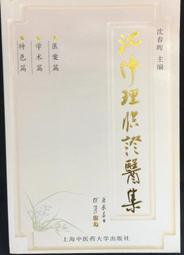 沈春晖 主编
沈仲理临证醫集
医案篇
学术篇
特色篇
上海中医药大学出版社